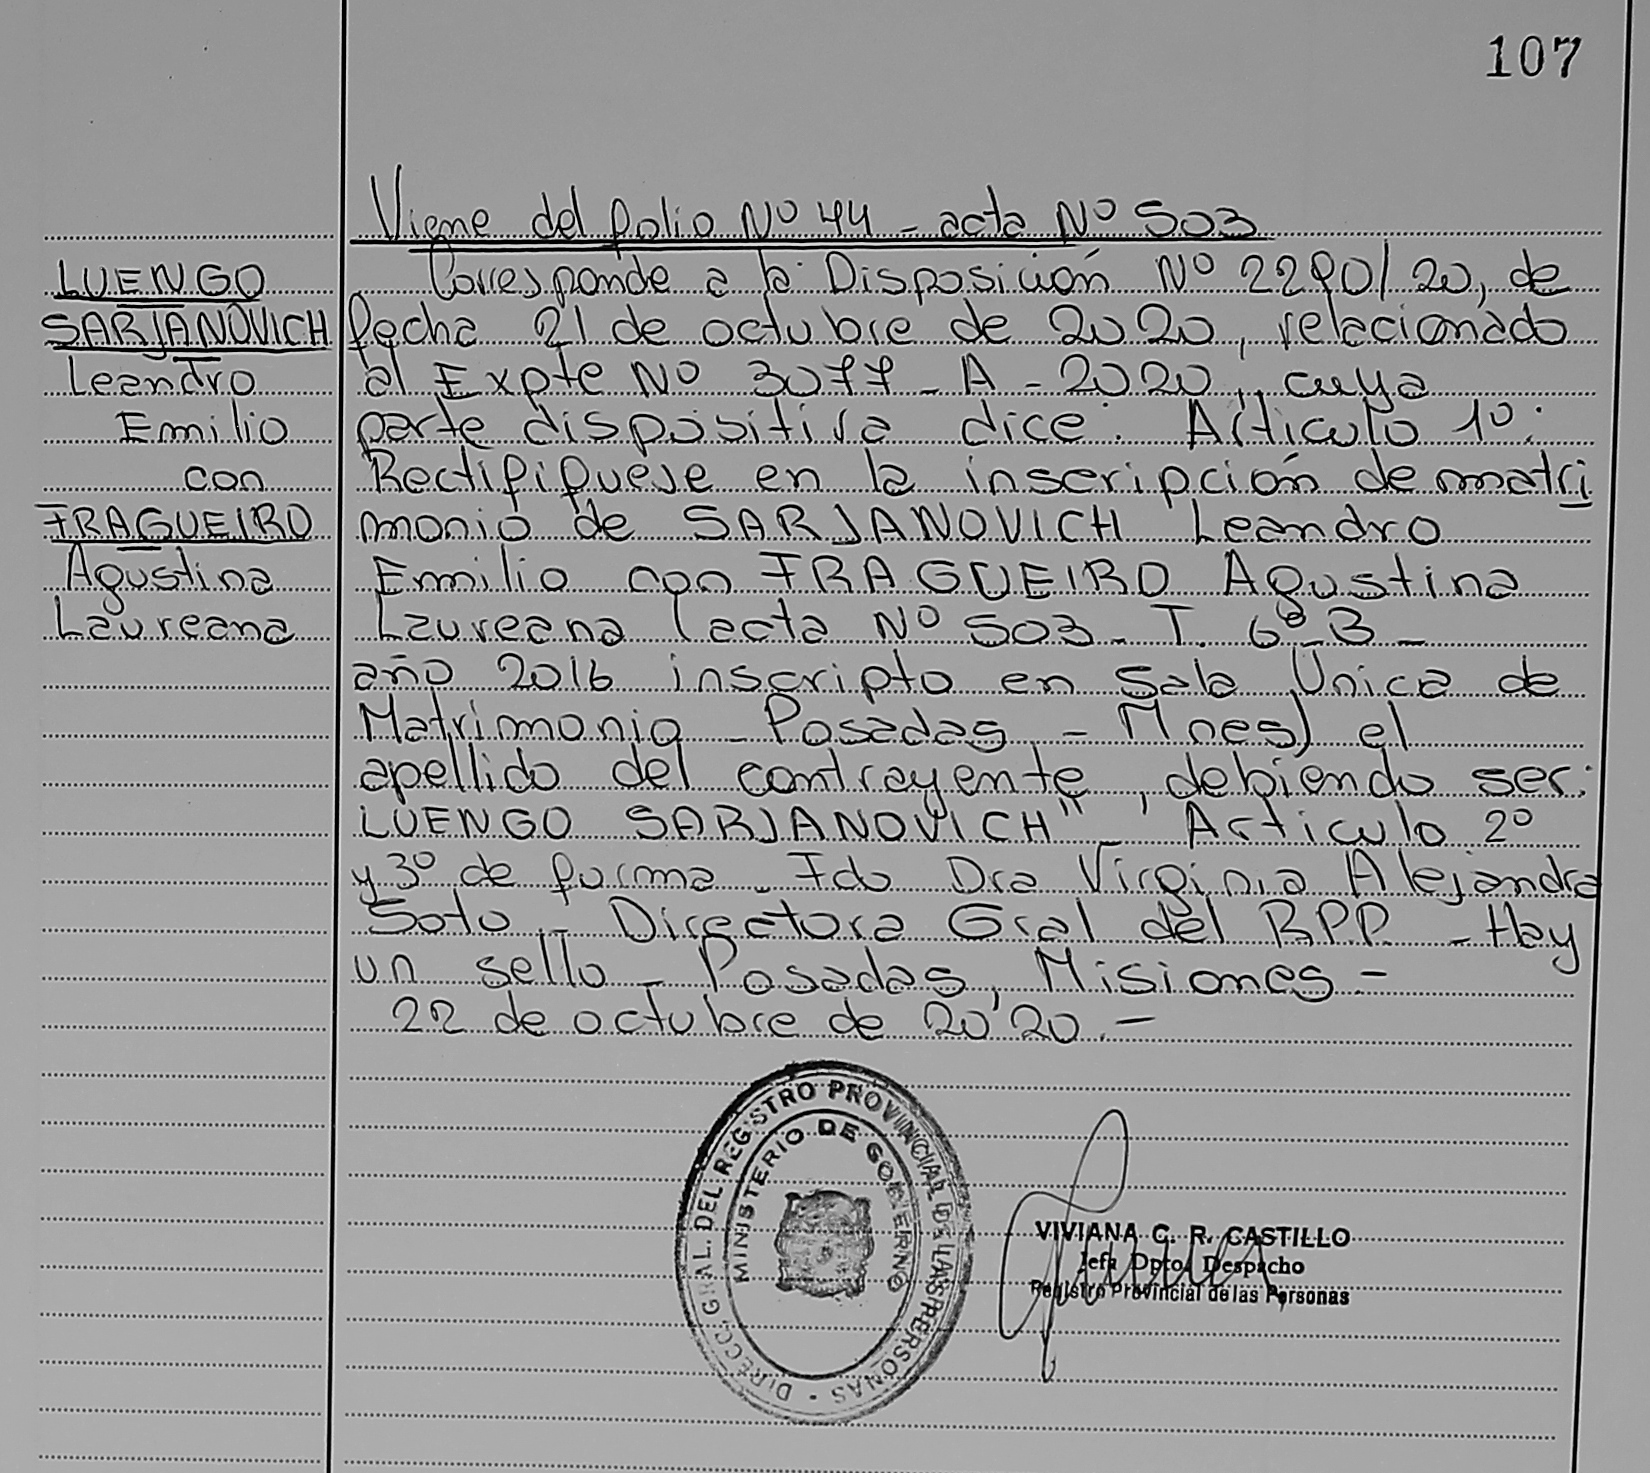 107
Viene del folio Nº 44 - acta Nº 503
LUENGO
SARJANOVICH
Leandro
Emilio
con
FRAGUEIRO
Agustina
Laureana
Corresponde a la Disposición Nº 2290/20, de
fecha 21 de octubre de 2020, relacionado
al Expte Nº 3077-A-2020, cuya
parte dispositiva dice: Artículo 1º:
Rectifífuese en la inscripción de matri
monio de SARJANOVICH Leandro
Emilio con FRAGUEIRO Agustina
Laureana (acta Nº 503- T. 6º B -
año 2016 inscripto en Sala Única de
Matrimonio - Posadas - Mnes) el
apellido del contrayente, debiendo ser:
LUENGO SARJANOVICH" Artículo 2º
y 3º de forma. Fdo Dra Virginia Alejandra
Soto - Directora Gral del R.P.P. - Hay
un sello - Posadas, Misiones -
22 de octubre de 2020.-
DIRECC. GRAL. DEL REGISTRO PROVINCIAL DE LAS PERSONAS
MINISTERIO DE GOBIERNO
VIVIANA C. R. CASTILLO
Jefa Dpto. Despacho
Registro Provincial de las Personas